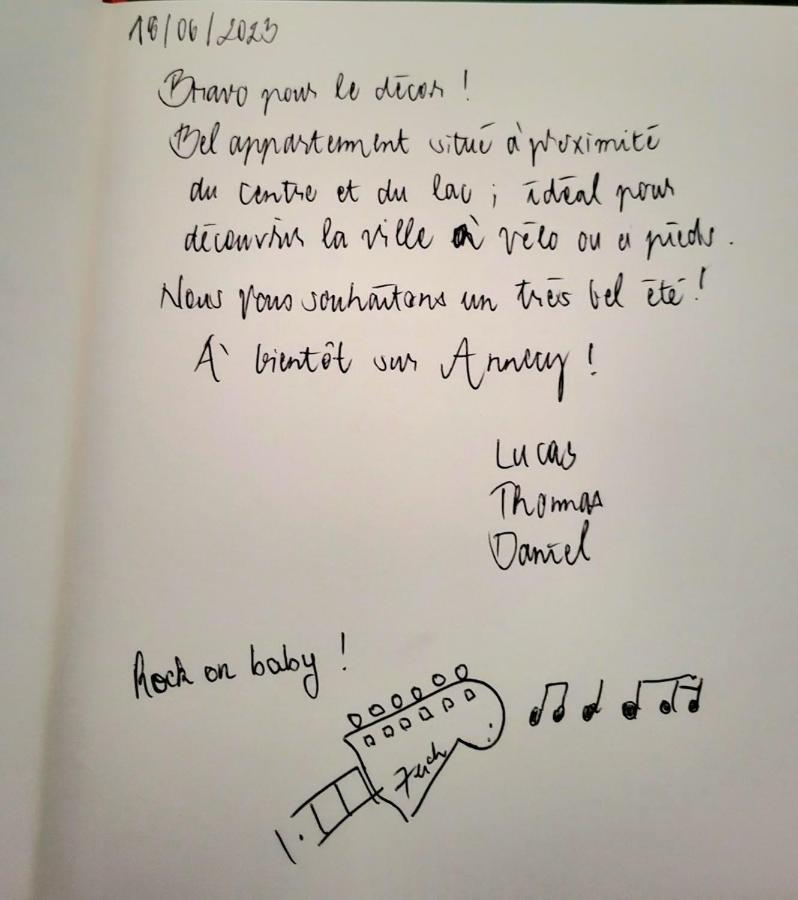 18/06/2023
Bravo pour le décor !
Bel appartement situé à proximité
du centre et du lac ; idéal pour
découvrir la ville à vélo ou à pieds.
Nous vous souhaitons un très bel été !
À bientôt sur Annecy !
Lucas
Thomas
Daniel
Rock on baby !